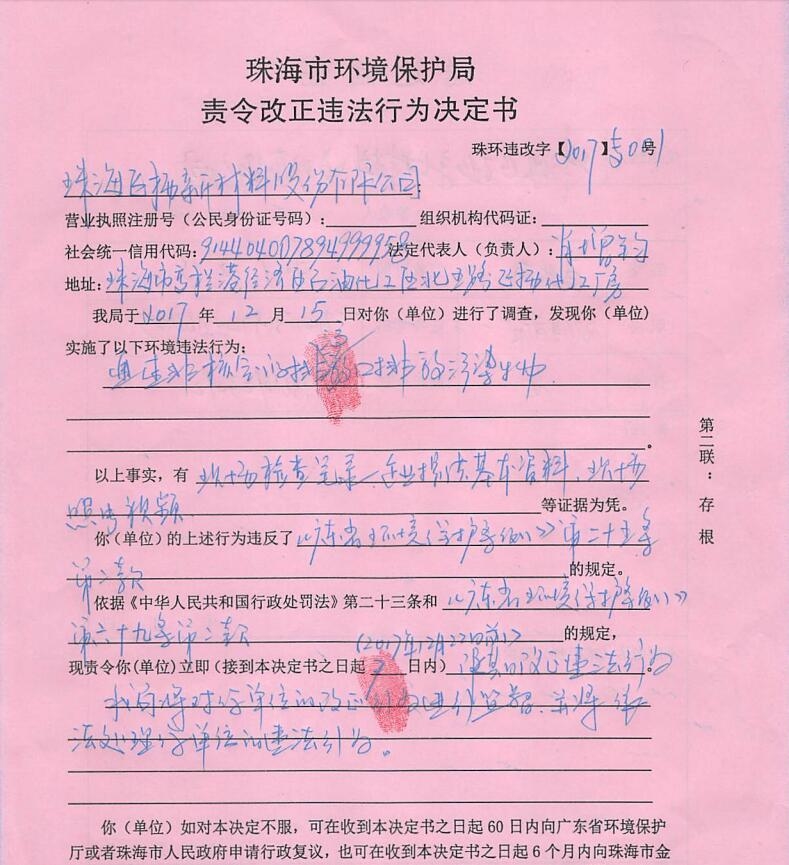 珠海市环境保护局
责令改正违法行为决定书
珠环违改字【2017】号
珠海新材料股份有限公司:
营业执照注册号(公民身份证号码): 组织机构代码证:
社会统一信用代码: 法定代表人(负责人):肖增钧
地址:珠海市高栏港经济区石油化工区北路厂房
我局于2017年12月15日对你(单位)进行了调查,发现你(单位)
实施了以下环境违法行为:
排放污染物
。
以上事实,有现场检查笔录、企业提供基本资料、现场
照片视频等证据为凭。
你(单位)的上述行为违反了《广东省环境保护条例》第二十五条
第二款的规定。
依据《中华人民共和国行政处罚法》第二十三条和《广东省环境保护条例》
第六十九条第二款的规定,
(2017年12月22日前)
现责令你(单位)立即(接到本决定书之日起7日内)改正违法行为。
我局将对你单位的改正行为进行监督,并将依
法处理你单位的违法行为。
你(单位)如对本决定不服,可在收到本决定书之日起60日内向广东省环境保护
厅或者珠海市人民政府申请行政复议,也可在收到本决定书之日起6个月内向珠海市金
第二联:存根